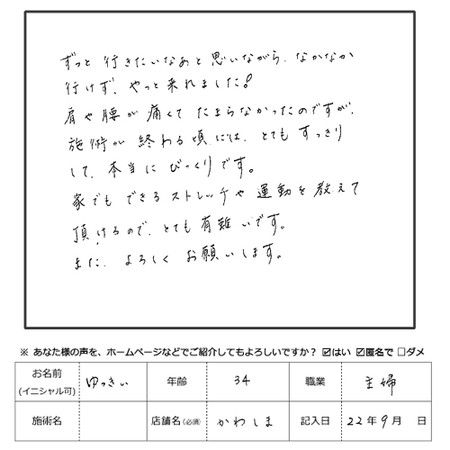 ずっと行きたいなあと思いながら、なかなか
行けず、やっと来れました!
肩や腰が痛くてたまらなかったのですが、
施術が終わる頃には、とてもすっきり
して、本当にびっくりです。
家でもできるストレッチや運動を教えて
頂けるので、とても有難いです。
また、よろしくお願いします。
※ あなた様の声を、ホームページなどでご紹介してもよろしいですか? ☑はい ☑匿名で □ダメ
お名前(イニシャル可) ゆっきぃ 年齢 34 職業 主婦
施術名 店舗名(必須) かわしま 記入日 22年9月 日